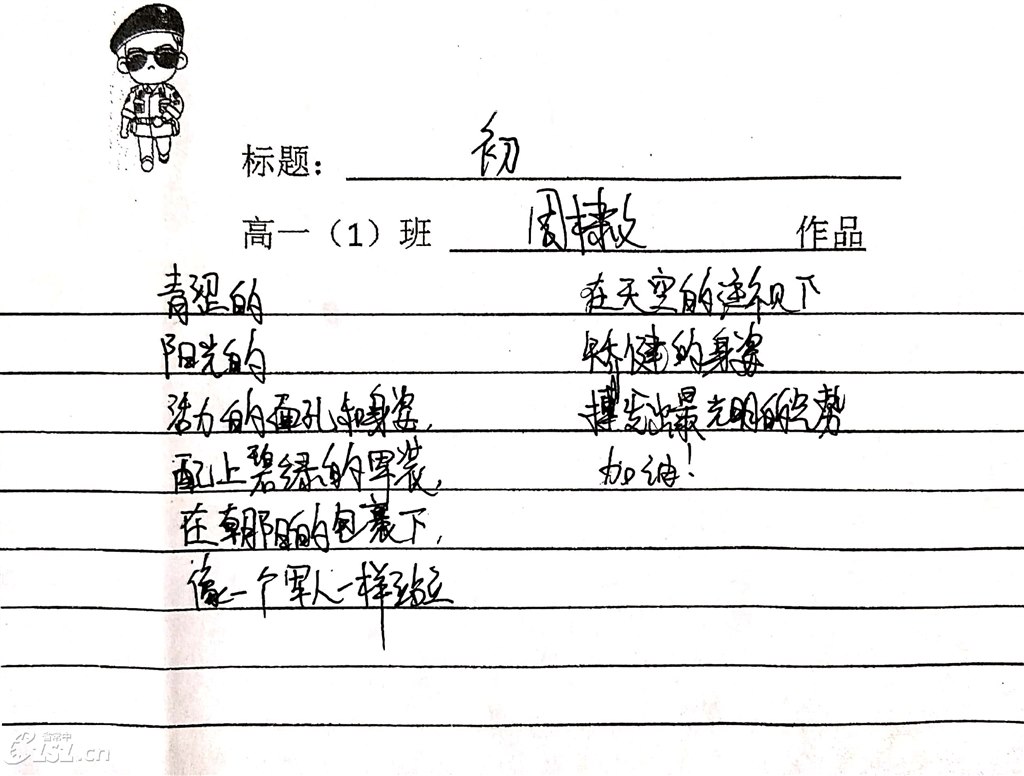 标题: 初
高一（1）班 周棣 作品
青涩的
阳光的
活力的面孔和身姿,
配上碧绿的军装,
在朝阳的包裹下,
像一个军人一样站立
在天空的注视下
矫健的身姿
摆发出最光明的气势
加油!